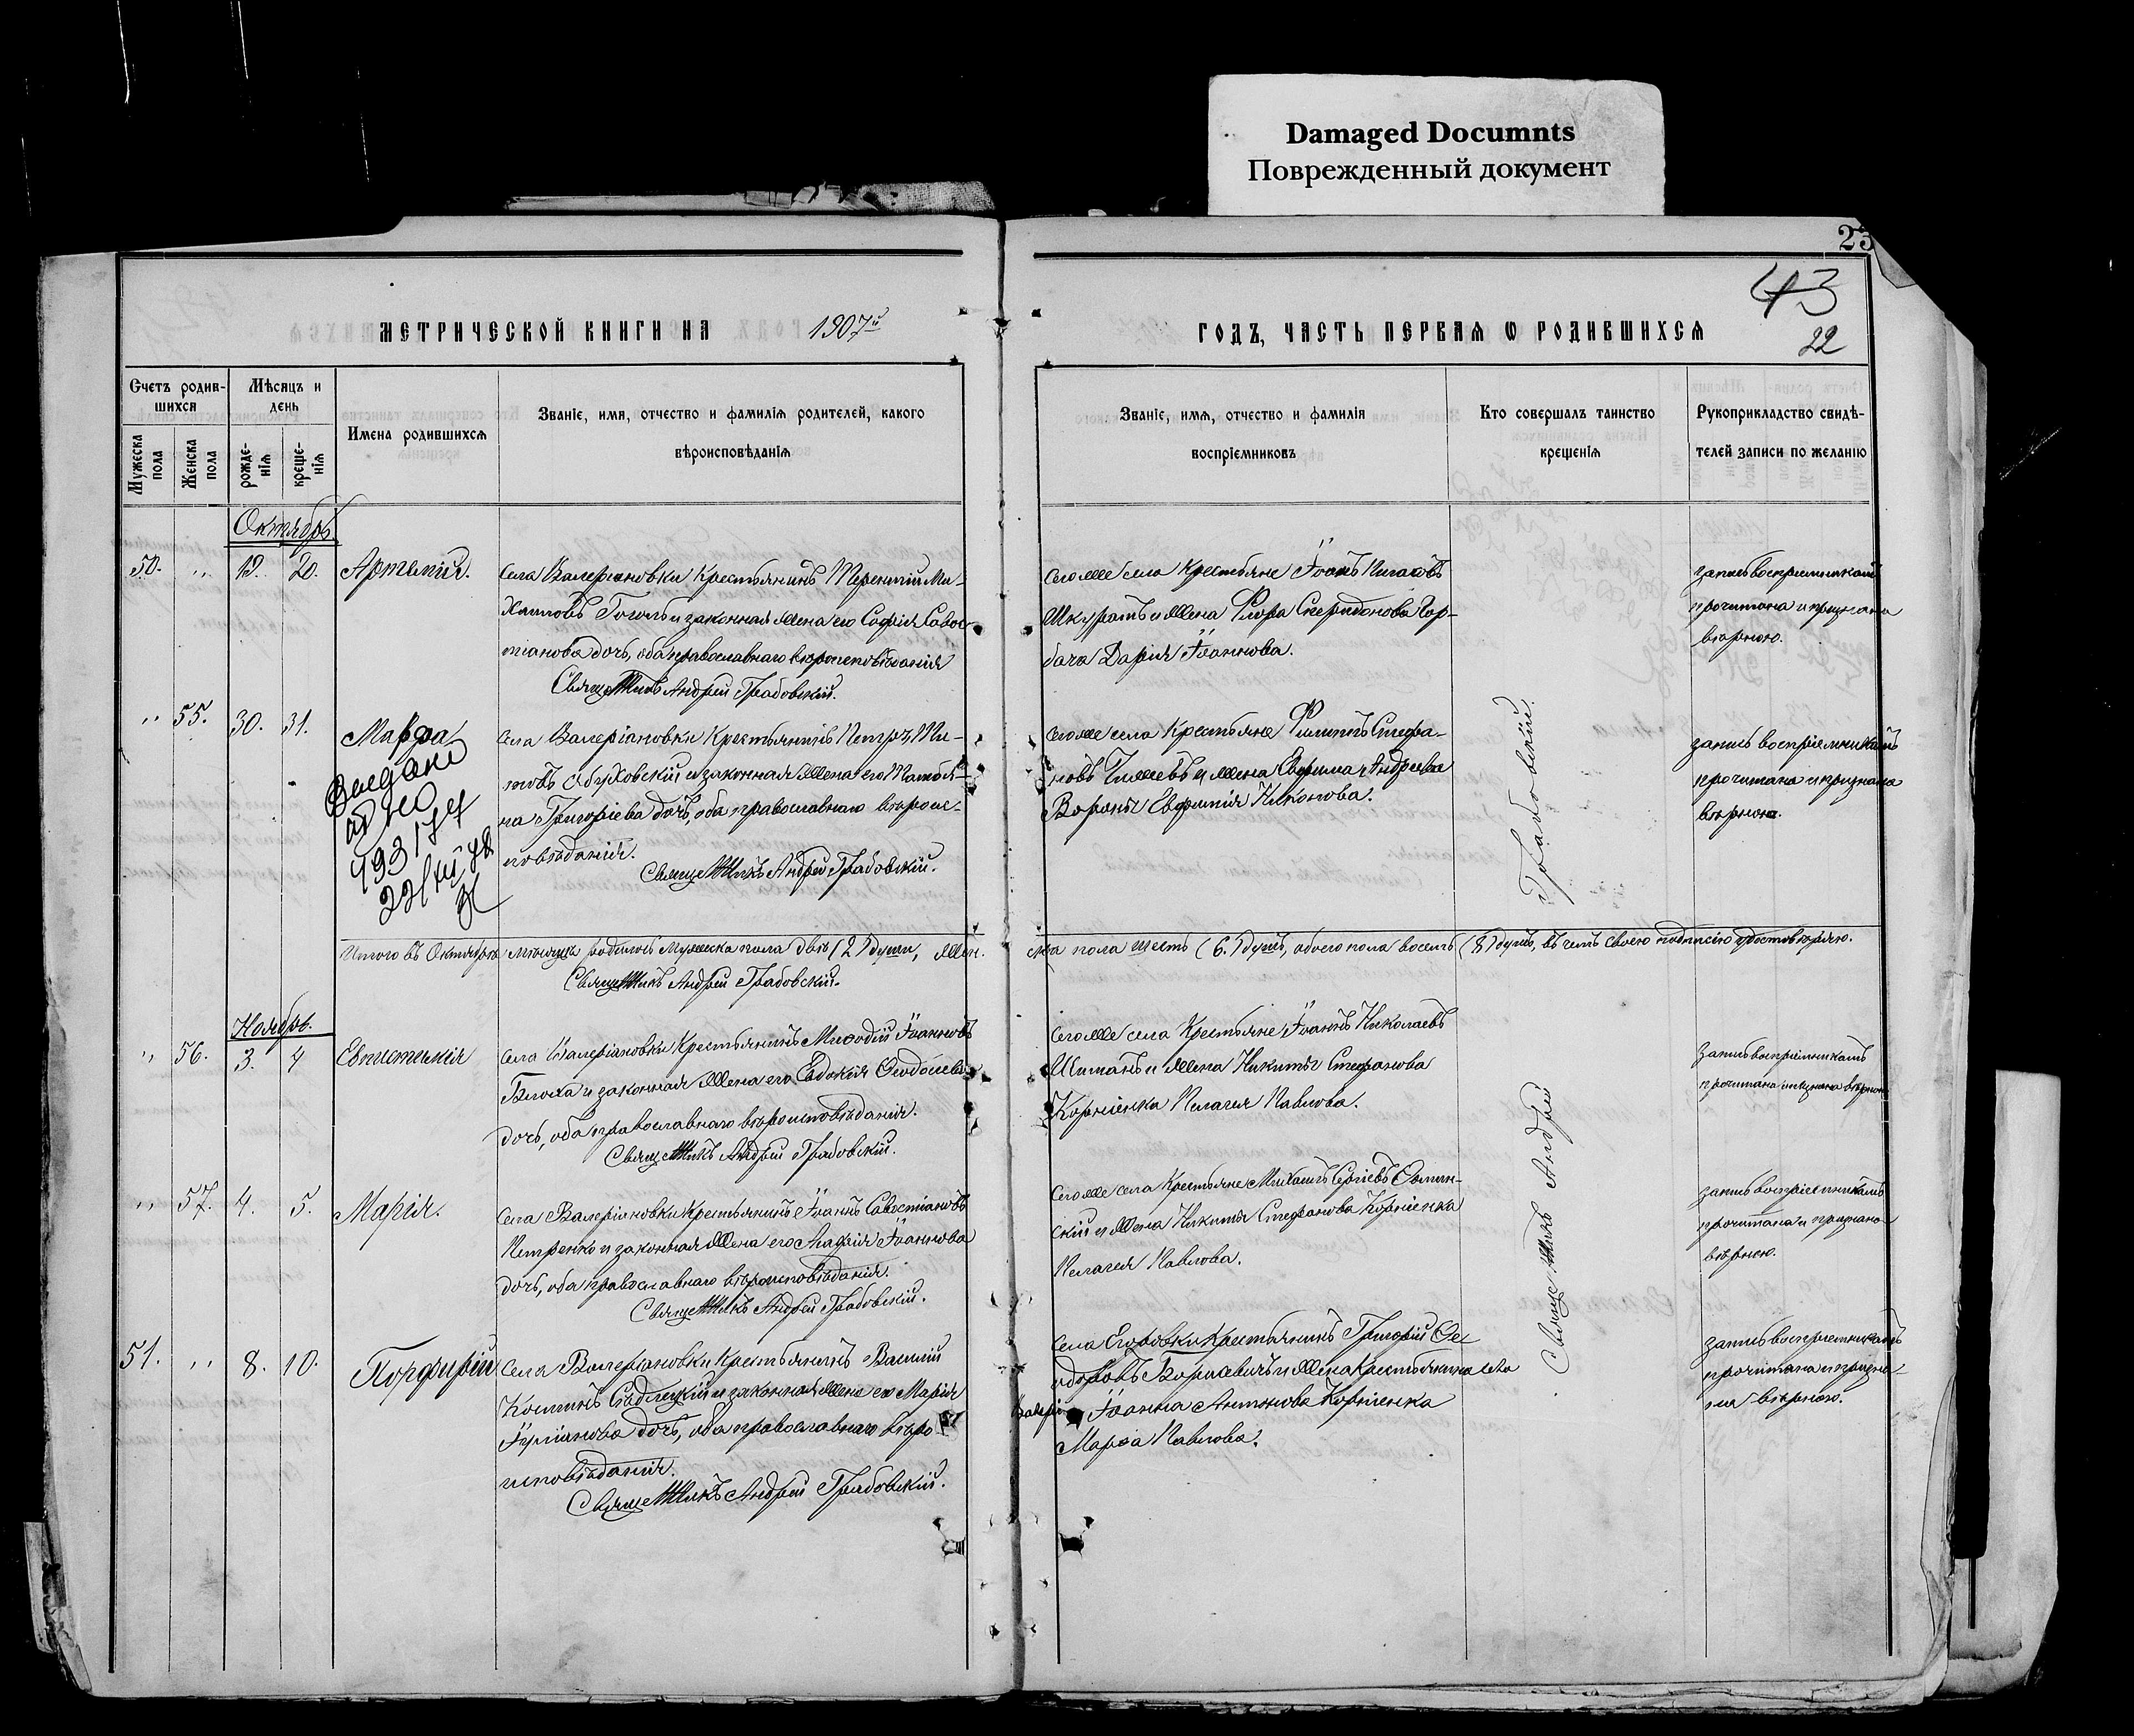 Damaged Documnts
Поврежденный документ
23
43
22
МЕТРИЧЕСКОЙ КНИГИ НА 1907й
ГОДЪ, ЧАСТЬ ПЕРВАЯ Ѡ РОДИВШИХСЯ
Счетъ родив-
шихся
Мужеска пола
Женска пола
Мѣсяцъ и
день
рожде-
нія
креще-
нія
Имена родившихся
Званіе, имя, отчество и фамилія родителей, какого
вѣроисповѣданія
Званіе, имя, отчество и фамилія
воспріемниковъ
Кто совершалъ таинство
крещенія
Рукоприкладство свидѣ-
телей записи по желанію
Октябрь
50. " 19. 20. Артемій.
Села Валеріановки крестьянинъ Терентій Ми-
хаиловъ Гоголь и законная жена его Софія Савос-
тіанова дочь, оба православнаго вѣроисповѣданія
Священникъ Андрей Грабовскій.
Сего же села крестьяне Іоаннъ
Шкуратъ и жена Флора Спиридонова Гор-
бача Дарія Іоаннова.
запись воспріемникамъ
прочитана и признана
вѣрною.
" 55. 30. 31. Марѳа
Села Валеріановки крестьянинъ Петръ Ти-
товъ Обуховскій и законная жена его Татья-
на Григоріева дочь, оба православнаго вѣроис-
повѣданія.
Священникъ Андрей Грабовскій.
Сего же села крестьяне Филиппъ Стефа-
новъ и жена Ефрима Андреева
Вороны Евфимія Никонова.
запись воспріемникамъ
прочитана и признана
вѣрною.
Итого въ Октябрѣ мѣсяцѣ родилось Мужеска пола двѣ (2) души, Жен-
ска пола шесть (6.) душъ, обоего пола восемь (8) душъ, въ чемъ своею подписью удостовѣряю.
Священникъ Андрей Грабовскій.
Ноябрь.
" 56. 3. 4 Евпистимія
Села Валеріановки крестьянинъ Меѳодій Іоанновъ
Блоха и законная жена его Евдокія Ѳеодосіева
дочь, оба православнаго вѣроисповѣданія.
Священникъ Андрей Грабовскій.
Сего же села крестьяне Іоаннъ Николаевъ
Шиманъ и жена Никиты Стефанова
Корніенка Пелагея Павлова.
запись воспріемникамъ
прочитана и признана вѣрною
" 57. 4. 5. Марія.
Села Валеріановки крестьянинъ Іоаннъ Савостіановъ
Петренко и законная жена его Агафія Іоаннова
дочь, оба православнаго вѣроисповѣданія.
Священникъ Андрей Грабовскій.
Сего же села крестьяне Михаилъ Сергіевъ
скій и жена Никиты Стефанова Корніенка
Пелагея Павлова.
запись воспріемникамъ
прочитана и признана
вѣрною.
51. " 8. 10. Порфирій
Села Валеріановки крестьянинъ Василій
Косминъ Сѣдлецкій и законная жена его Марія
Іуліанова дочь, оба православнаго вѣро
исповѣданія.
Священникъ Андрей Грабовскій.
Села Егоровки крестьянинъ Григорій Ѳе-
одоровъ Борисевичъ и жена крестьянина села
Валері Іоанна Антонова Корніенка
Марѳа Павлова.
запись воспріемникамъ
прочитана и призна-
на вѣрною.
Священникъ Андрей
Грабовскій.